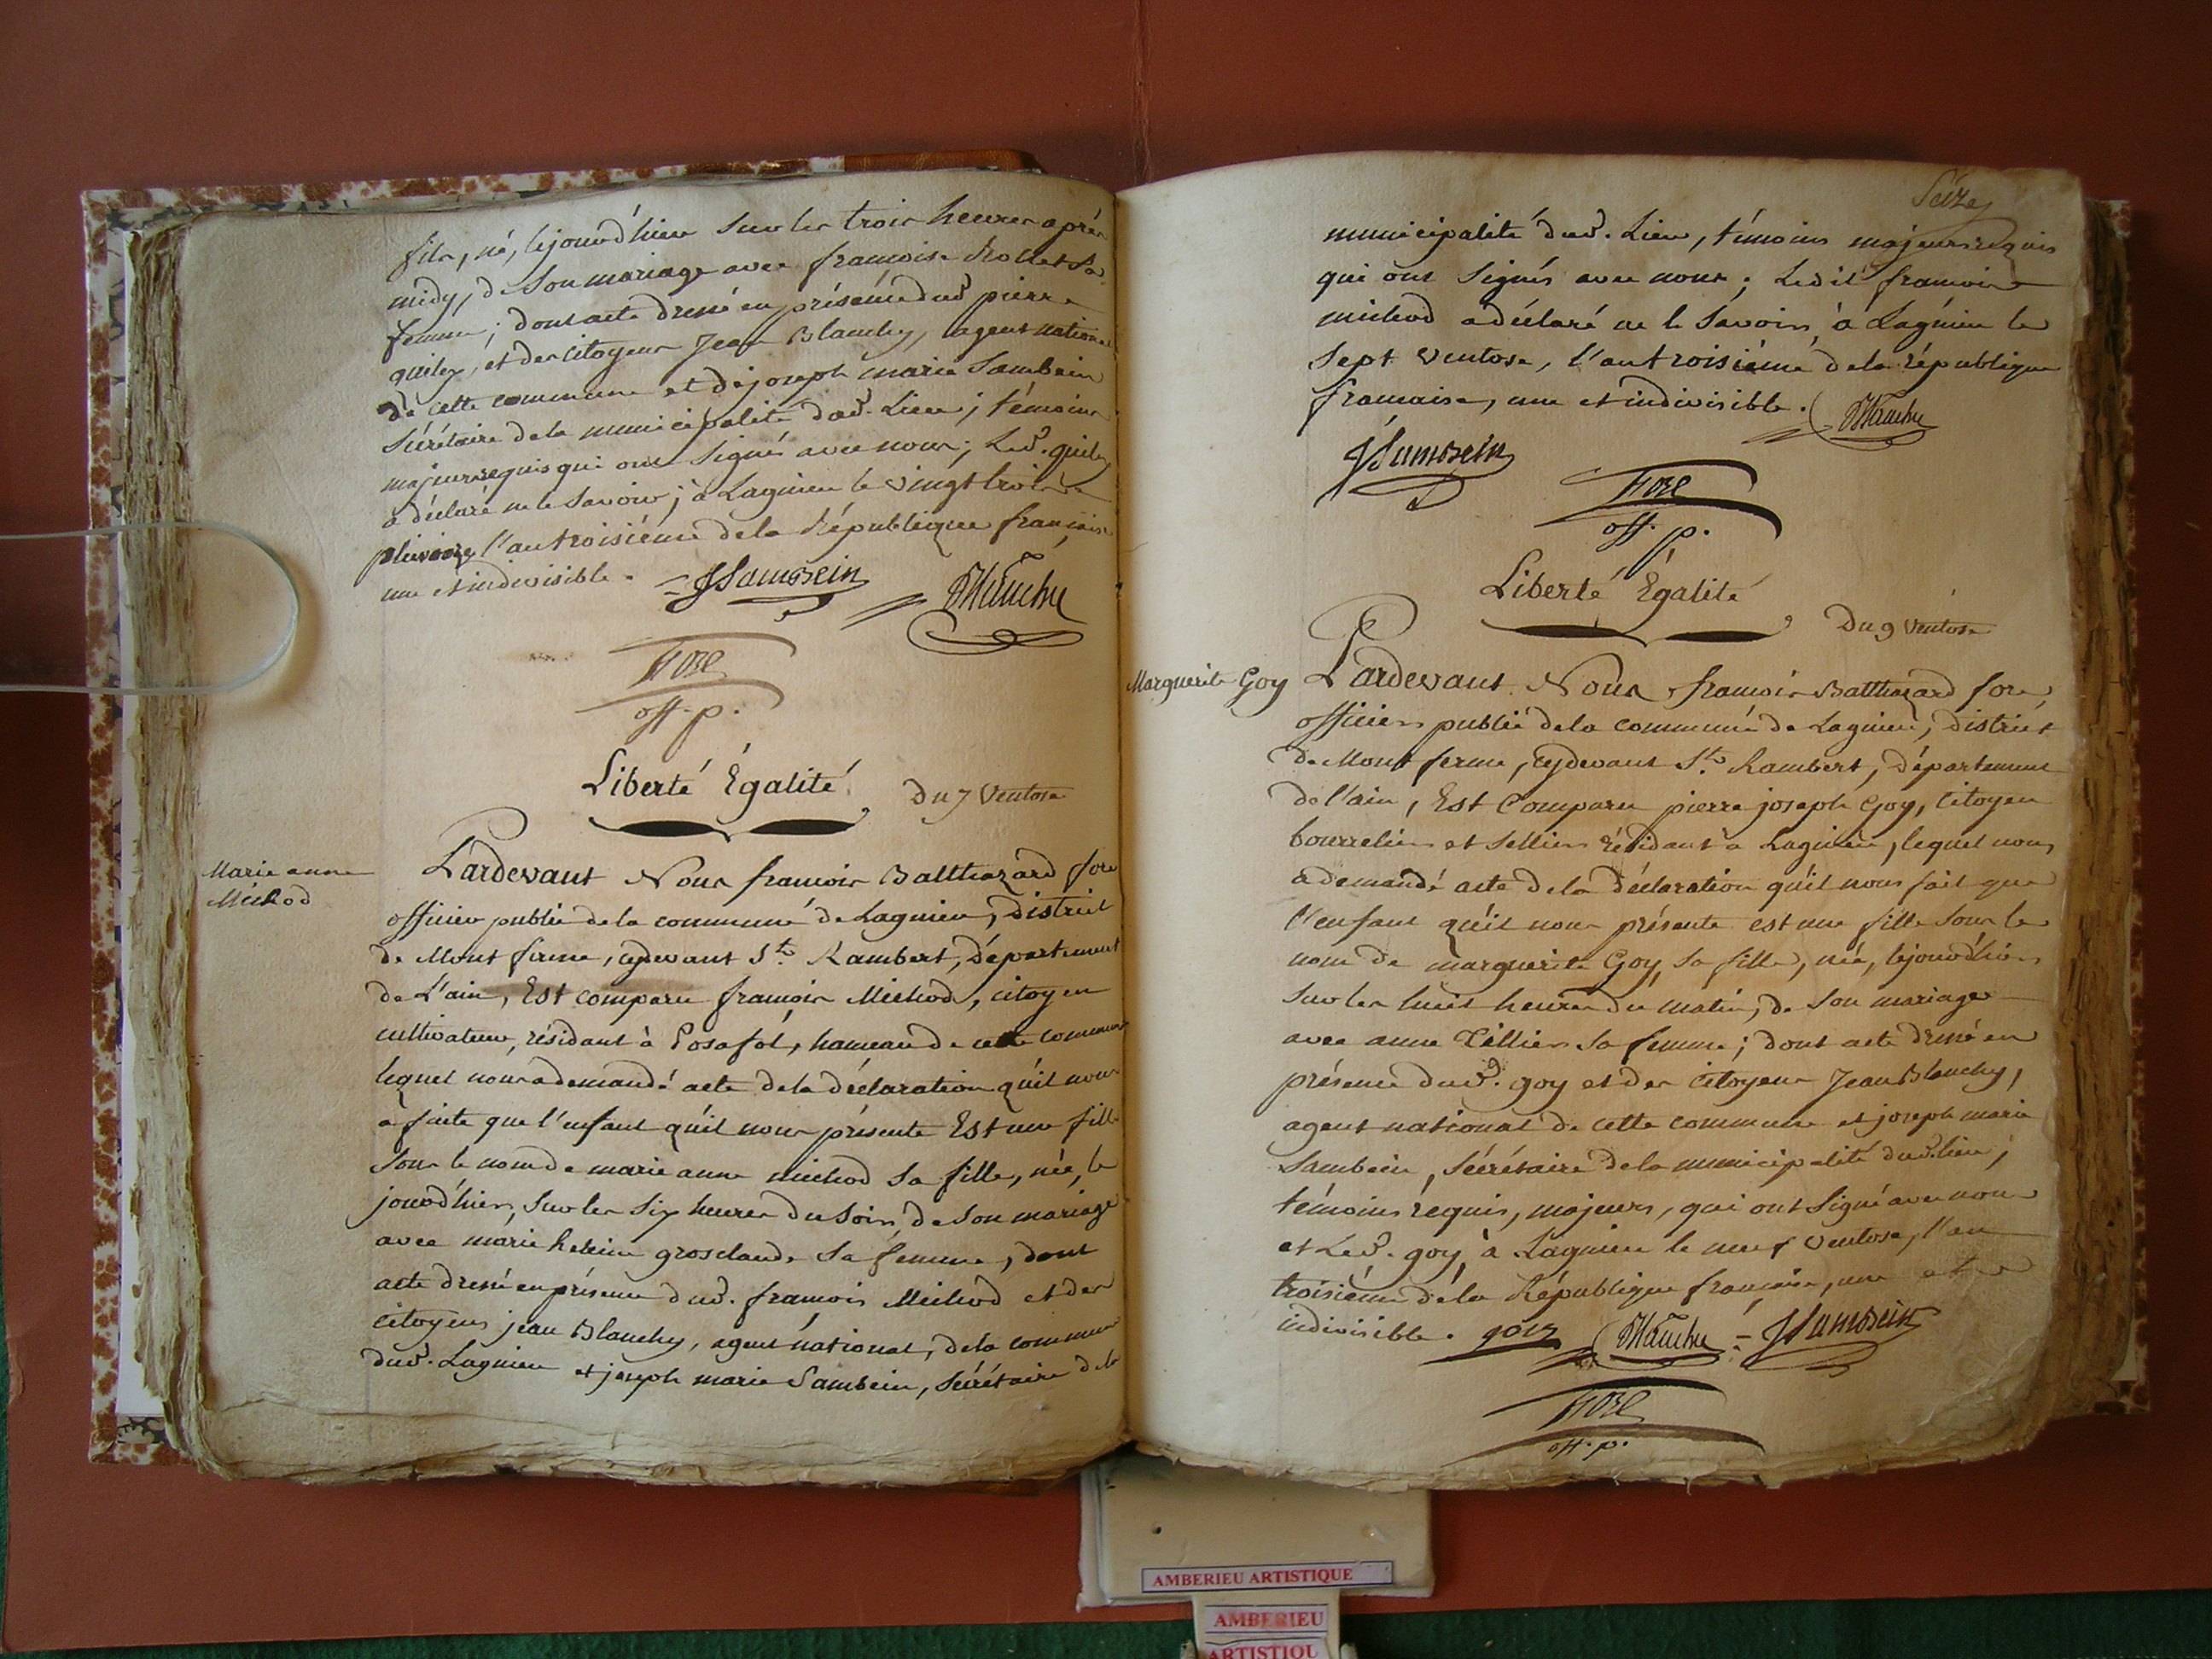 fils, né, lejourd'hier sur les trois heures après
midy, de son mariage avec françoise Rollet sa
femme ; dont acte dressé en présence dud. pierre
quiley, et des citoyens Jean Blanchy, agent national
de cette commune et de joseph marie Sambein
sécrétaire dela municipalité dud. Lieu ; témoins
majeurs requis qui ont signés avec nous ; Led. quiley
a déclaré ne le savoir ; à Lagnieu le vingt trois
pluviose l'an troisiéme dela République française
une et indivisible.
JSambein
Blanchy
fore
off. p.
Liberté Égalité
Du 7 Ventose
Marie anne
Michod
Pardevant Nous francois Balthazard fore
officier public de la commune de Lagnieu, District
de Mont ferme, cydevant St. Rambert, département
de L'ain, Est comparu francois Michod, citoyen
cultivateur, résidant à Posafol, hameau de cette commune
lequel nous a demandé acte dela déclaration qu'il nous
a faite que l'enfant qu'il nous présente Est une fille
sous le nom de marie anne michod sa fille, née, le
jourd'hier, sur les six heures du soir, de son mariage
avec marie heleine grosclaude sa femme, dont
acte dressé en présence dud. francois Michod et des
citoyens jean Blanchy, agent national, dela commune
dud. Lagnieu et joseph marie Sambein, sécrétaire dela
Seize
municipalité dud. Lieu, témoins majeurs requis
qui ont signés avec nous ; Ledit francois
michod a déclaré ne le savoir, à Lagnieu le
sept ventose, l'an troisiéme dela république
francaise, une et indivisible.
Blanchy
JSambein
fore
off. p.
Liberté Égalité
Du 9 Ventose
Marguerite Goy
Pardevant Nous francois Balthazard fore,
officier public dela commune de Lagnieu, district
de Mont ferme, cydevant St. Rambert, département
de l'ain, Est Comparu pierre joseph Goy, Citoyen
bourrelier et sellier résidant à Lagnieu, lequel nous
a demandé acte dela déclaration qu'il nous fait que
l'enfant qu'il nous présente est une fille sous le
nom de marguerite Goy, sa fille, née, lejourd'hier
sur les huit heures du matin, de son mariage
avec anne Tillier sa femme ; dont acte dressé en
présence dud. goy et des citoyens Jean Blanchy,
agent national de cette commune et joseph marie
Sambein, sécrétaire dela municipalité dud. lieu,
témoins requis, majeurs, qui ont signé avec nous
et Led. goy, à Lagnieu le neuf ventose, l'an
troisiéme dela République française, une et
indivisible. goy
Blanchy
JSambein
fore
off. p.
AMBERIEU ARTISTIQUE
AMBERIEU
ARTISTIQU